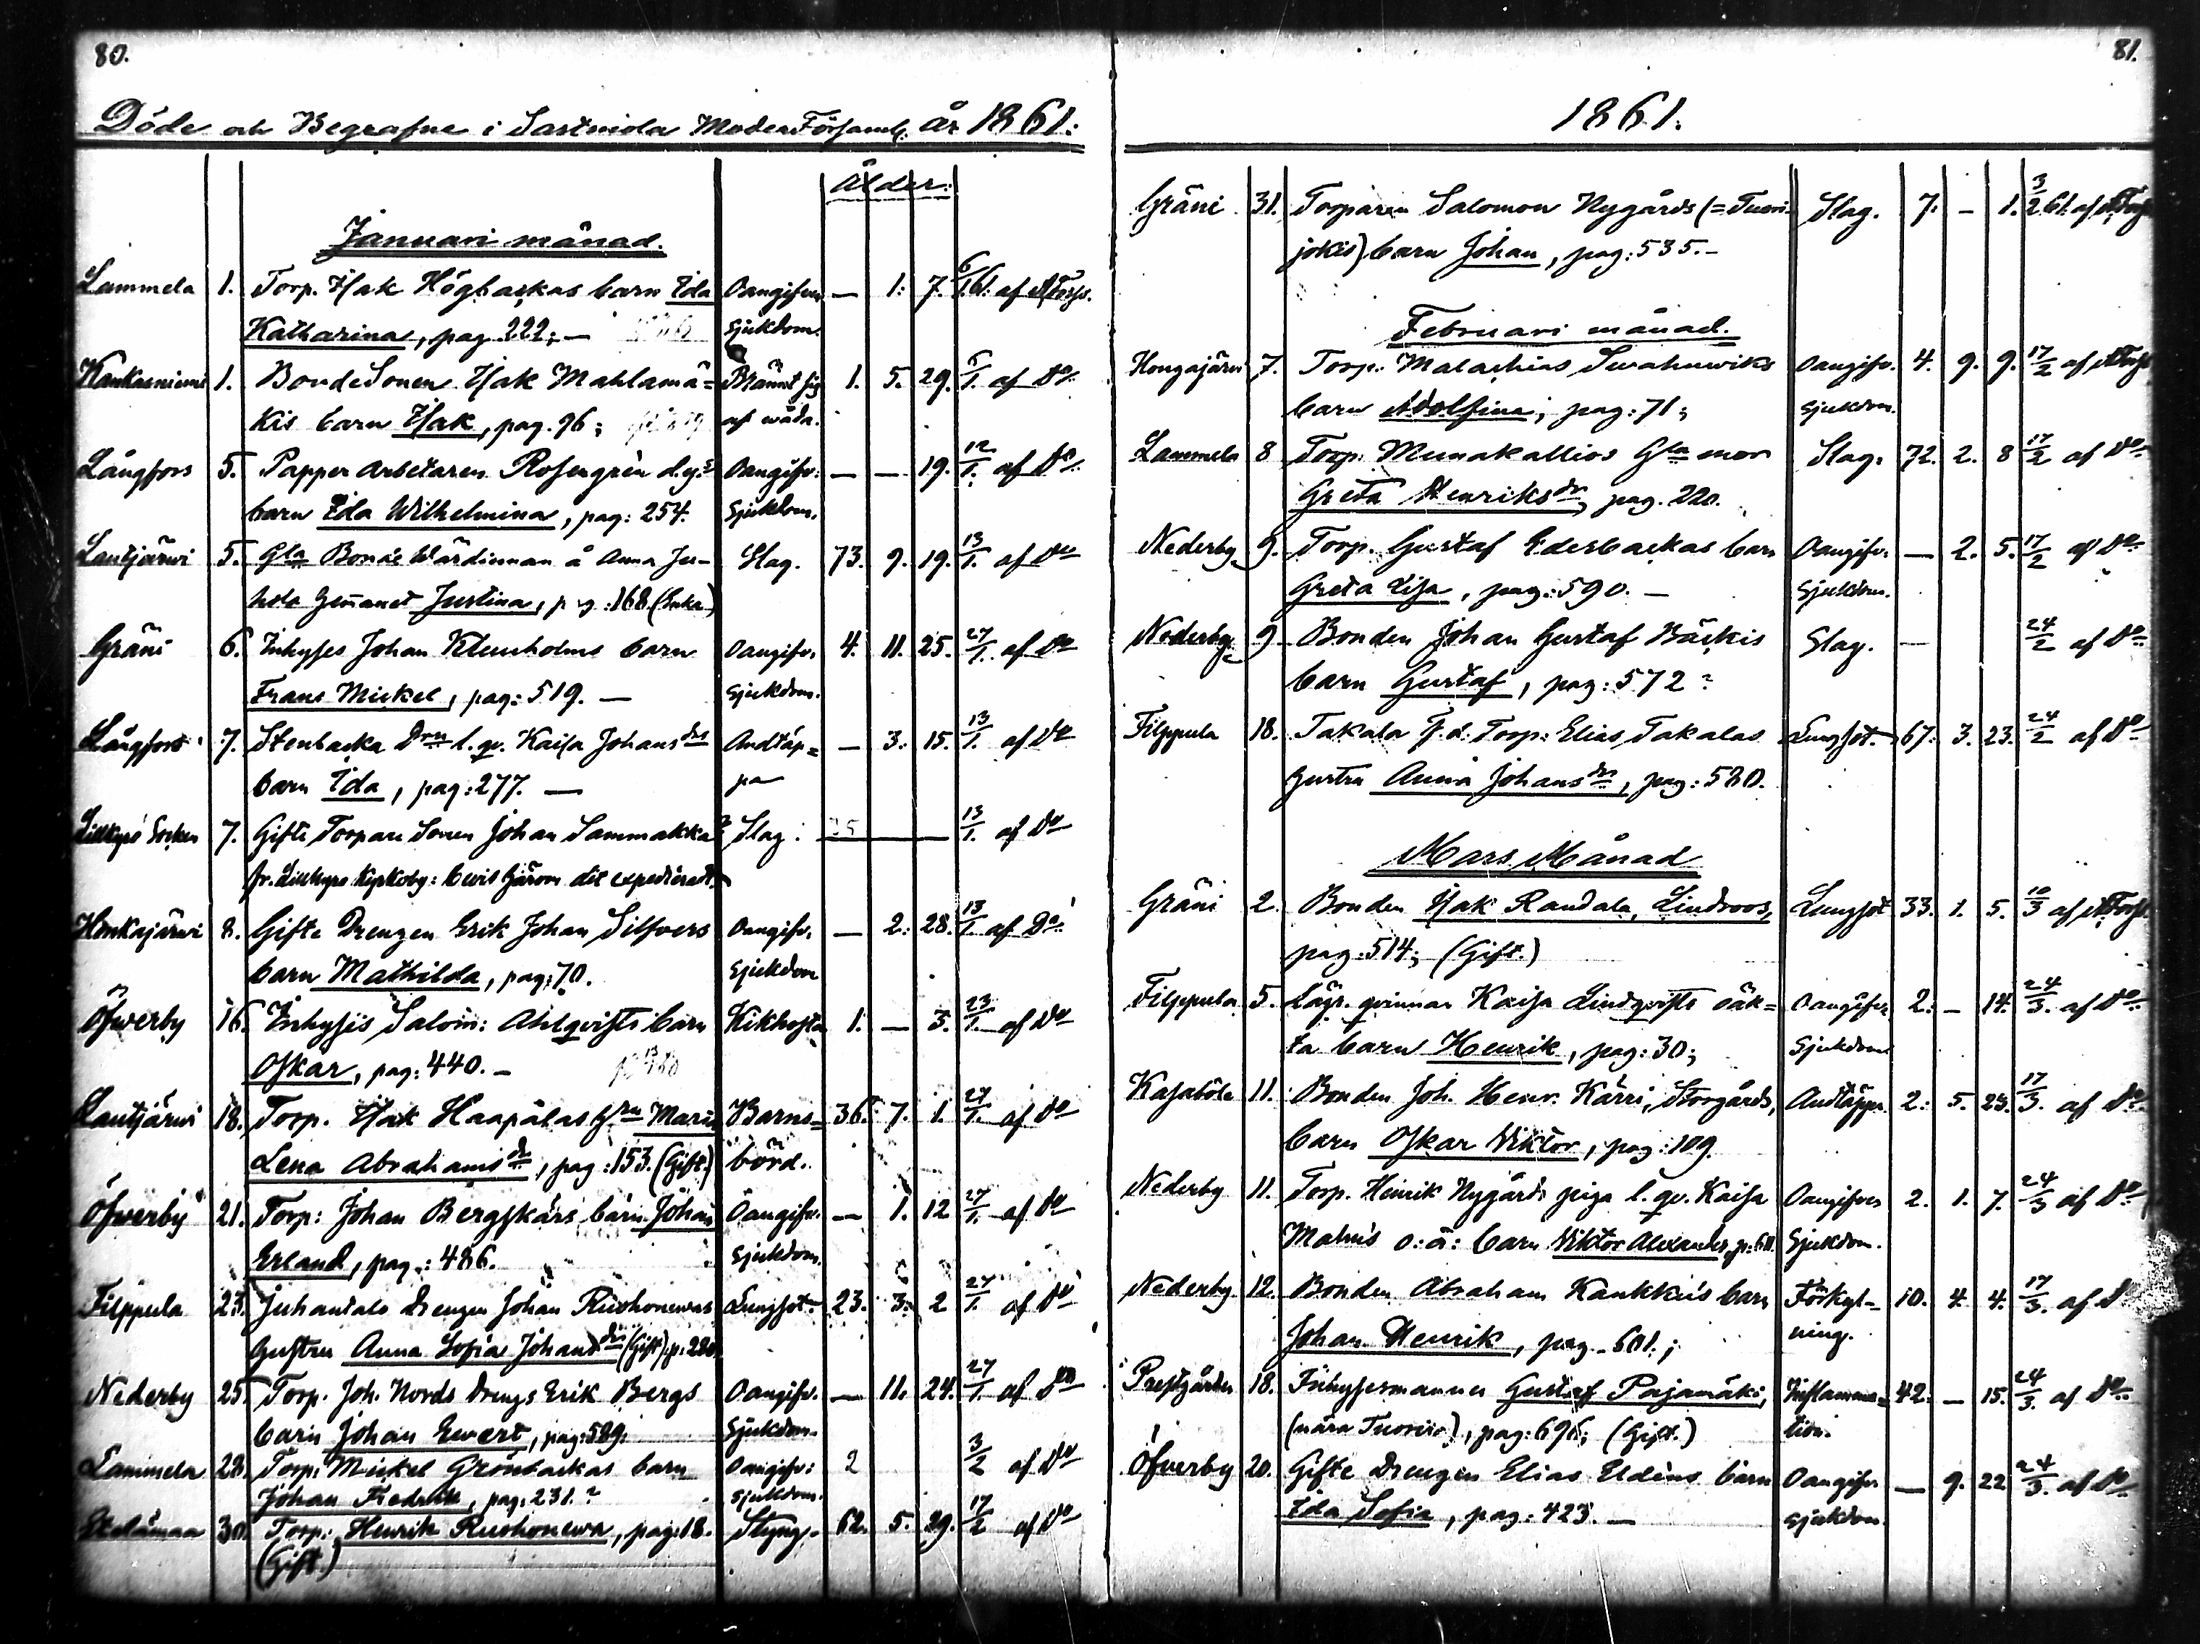 80.
Döde och Begrafne i Sastmola ModerFörsaml. år 1861:
Ålder:
Januari månad.
Lammela 1. Torp. Isak Högbackas barn Ida Oangifven — 1. 7. 6/1.61. af
Katharina, pag. 222; — sjukdom.
Kankasniemi 1. BondeSonen Isak Mahlamä= Brännt sig 1. 5. 29. 6/1. af Do
kis barn Isak, pag. 96; af wåda.
Långfors 5. Papper arbetaren Rosengrèn d.y:s Oangifv: — — 19. 12/1. af Do
barn Ida Wilhelmina, pag: 254. Sjukdom.
Lautjärwi 5. Gla Bonde Wärdinnan å Anna Ju- Slag. 73. 9. 19. 13/1. af Do
Justina, pag: 168. (Enka)
Gräni 6. Inhyses Johan Klenholms barn Oangifv. 4. 11. 25. 27/1. af Do
Frans Mickel, pag: 519. — Sjukdom.
Långfors 7. Stenbacka l. qv. Kaisa Johansdrs Andtäp= — 3. 15. 13/1. af Do
barn Ida, pag: 277. — pa
Lillkyro Socken 7. Gifte Torpare Sonen Johan Sammakka Slag: — 13/1. af Do
fr. Lillkyro Kyrkoby: bevis dit expedieradt
Honkajärwi 8. Gifte Drengen Erik Johan Silfvers Oangifv. — 2. 28. 13/1. af Do
barn Mathilda, pag: 70. Sjukdom
Öfverby 16. Inhyses Salom: Ahlqvists barn Kikhosta 1. — 3. 23/1. af Do
Oskar, pag: 440. —
Lautjärwi 18. Torp. Isak Haapalas Maria Barns= 36. 7. 1. 27/1. af Do
Lena Abrahamsdr, pag: 153. (Gift.) börd.
Öfverby 21. Torp: Johan Bergskärs barn Johan Oangifv. — 1. 12 27/1. af Do
Erland, pag: 486. Sjukdom.
Filppula 23. Juhantalo Drengen Johan Ruohonewas Lungsot. 23. 3. 2 27/1. af Do
Gustru Anna Sofia Johansdr (Gift) p. 280
Nederby 25. Torp. Joh. Nords Drengs Erik Bergs Oangifv. — 11. 24. 27/1. af Do
barn Johan Ewert, pag: 589. Sjukdom.
Lammela 28. Torp: Mickel Grönbackas barn Oangifv: 2 3/2 af Do
Johan Fredrik, pag. 231. ? Sjukdom.
Etelämaa 30. Torp: Henrik Ruohonewa, pag: 18. Styng. 62. 5. 29. 17/2 af Do
(Gift.)
81.
1861.
Gräni 31. Torparen Salomon Nygårds (=Tuori- Slag. 7. — 1. 3/2 61. af
jokis) barn Johan, pag: 535. —
Februari månad.
Hongajärwi 7. Torp. Malachias Swahnwiks Oangifv. 4. 9. 9. 17/2 af
barn Adolfina, pag: 71; Sjukdom.
Lammela 8 Torp. Munakallios Gla mor Slag. 72. 2. 8 17/2 af Do
Greta Henriksdr, pag. 220.
Nederby 9. Torp. Gustaf Ederbackas barn Oangifv. — 2. 5. 17/2 af Do
Greta Lisa, pag: 590. — Sjukdom.
Nederby 9. Bonden Johan Gustaf Bäckis Slag. — 24/2 af Do
barn Gustaf, pag: 572 ?
Filppula 18. Takala f.d. Torp: Elias Takalas Lungsot. 67. 3. 23. 24/2 af Do
Gustru Anna Johansdr, pag: 580.
Mars Månad
Gräni 2. Bonden Isak Randala, Lindroos, Lungsot 33. 1. 5. 10/3 af
pag: 514; (Gift.)
Filppula 5. Lägr. qvinnan Kaisa Lindqvists oäk= Oangifv. 2. — 14. 24/3. af Do
ta barn Henrik, pag: 30; Sjukdom
Kasaböle 11. Bonden Joh. Henr. Kärri, Storgårds, Andtäppa. 2. 5. 23. 17/3. af Do
barn Oskar Wiktor, pag: 109.
Nederby 11. Torp. Heinrik Nygårds piga l. qv. Kaisa Oangifven 2. 1. 7. 24/3 af Do
o: ä: barn Wiktor Alexander, Sjukdom.
Nederby 12. Bonden Abraham Kankkis barn Förkyl= 10. 4. 4. 17/3. af Do
Johan Henrik, pag. 601.; ning.
Prestgården 18. Inhysesmannen Gustaf Pajamäki, Inflamma= 42. — 15. 24/3. af Do
(nära), pag: 696; (Gift.) tion.
Öfverby 20. Gifte Drengen Elias Eldèns barn Oangifv. — 9. 22 24/3. af Do
Ida Sofia, pag: 423. — Sjukdom.